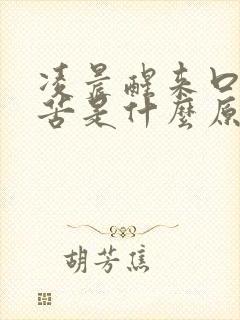 凌晨醒来口
苦是什麼原
胡芳焦